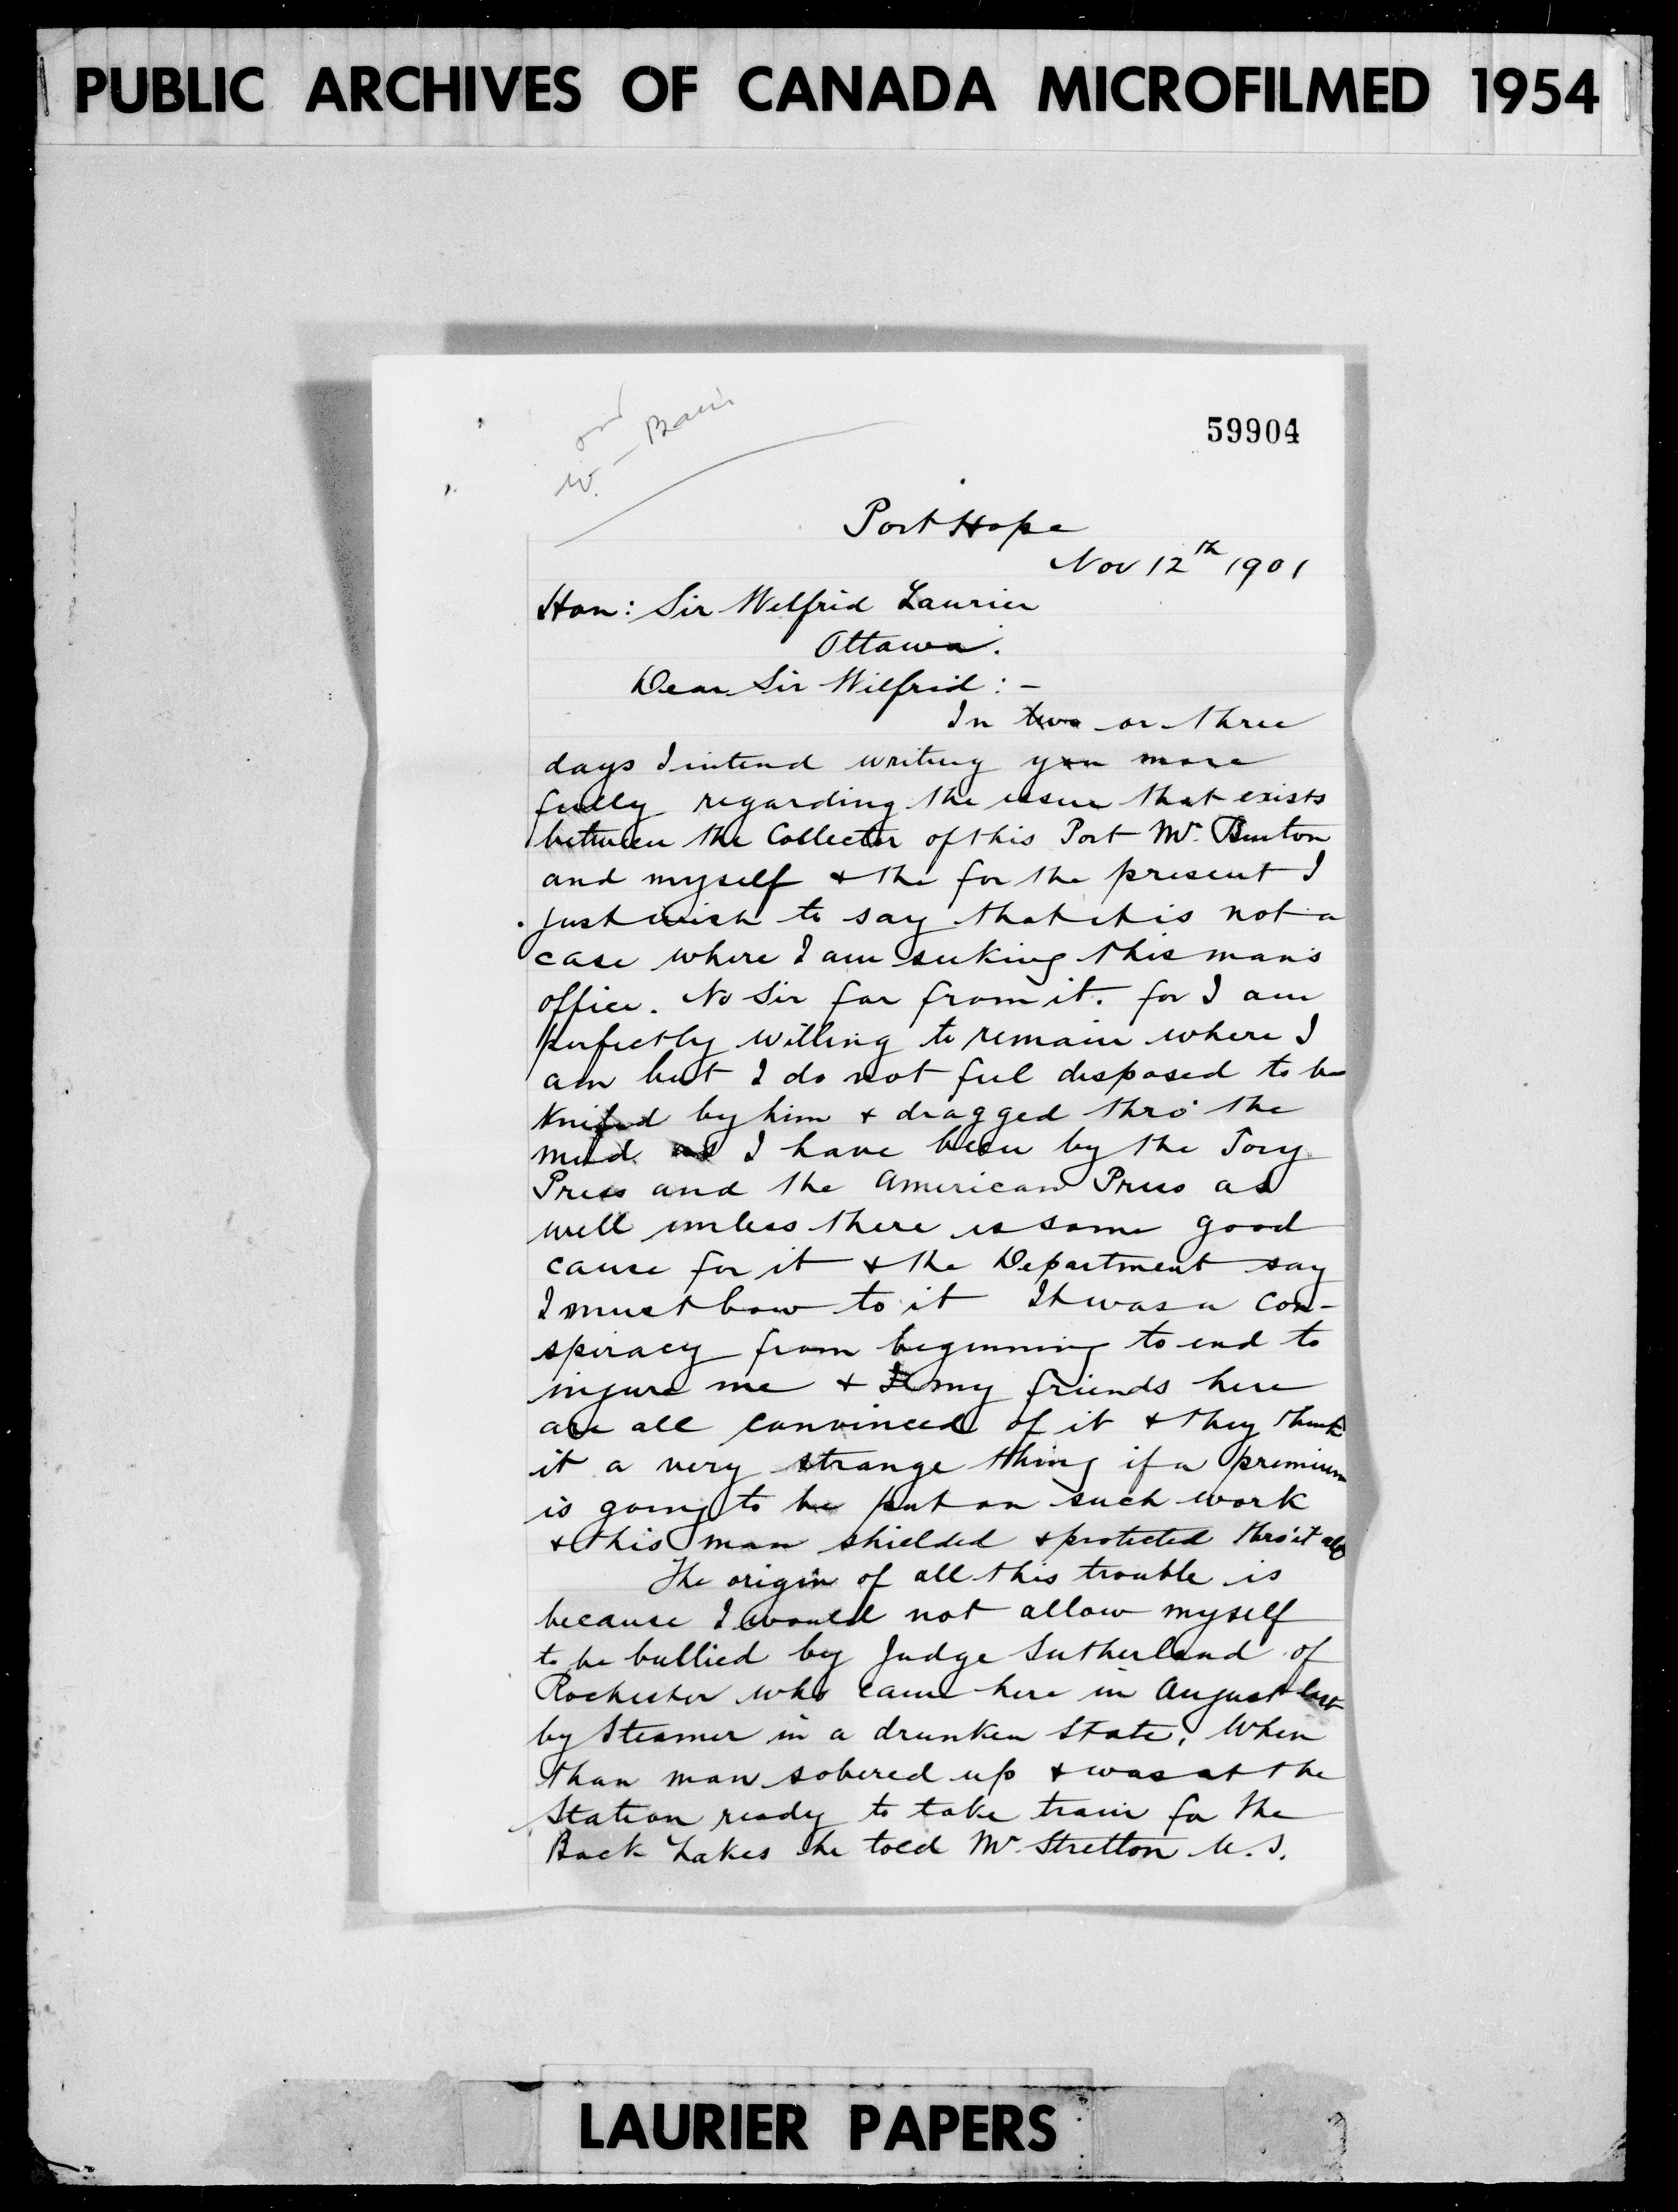 PUBLIC ARCHIVES OF CANADA MICROFILMED 1954
59904
Port Hope
Nov 12th 1901
Hon: Sir Wilfrid Laurier
Ottawa.
Dear Sir Wilfrid: -
In two or three
days I intend writing you more
fully regarding the issue that exists
between the Collector of this Port Mr. Burton
and myself & the for the present I
just wish to say that it is not a
case where I am seeking this man's
office. No Sir far from it. for I am
perfectly willing to remain where I
am but I do not feel disposed to be
knifed by him & dragged thro' the
mud as I have been by the Tory
Press and the American Press as
well unless there is some good
cause for it & the Department say
I must bow to it It was a con-
spiracy from beginning to end to
injure me & my friends here
are all convinced of it & they think
it a very strange thing if a premium
is going to be put on such work
& this man shielded & protected thro' it all
The origin of all this trouble is
because I would not allow myself
to be bullied by Judge Sutherland of
Rochester who came here in August last
by Steamer in a drunken state. When
than man sobered up & was at the
Station ready to take train for the
Back Lakes he told Mr. Stretton U.S.
LAURIER PAPERS